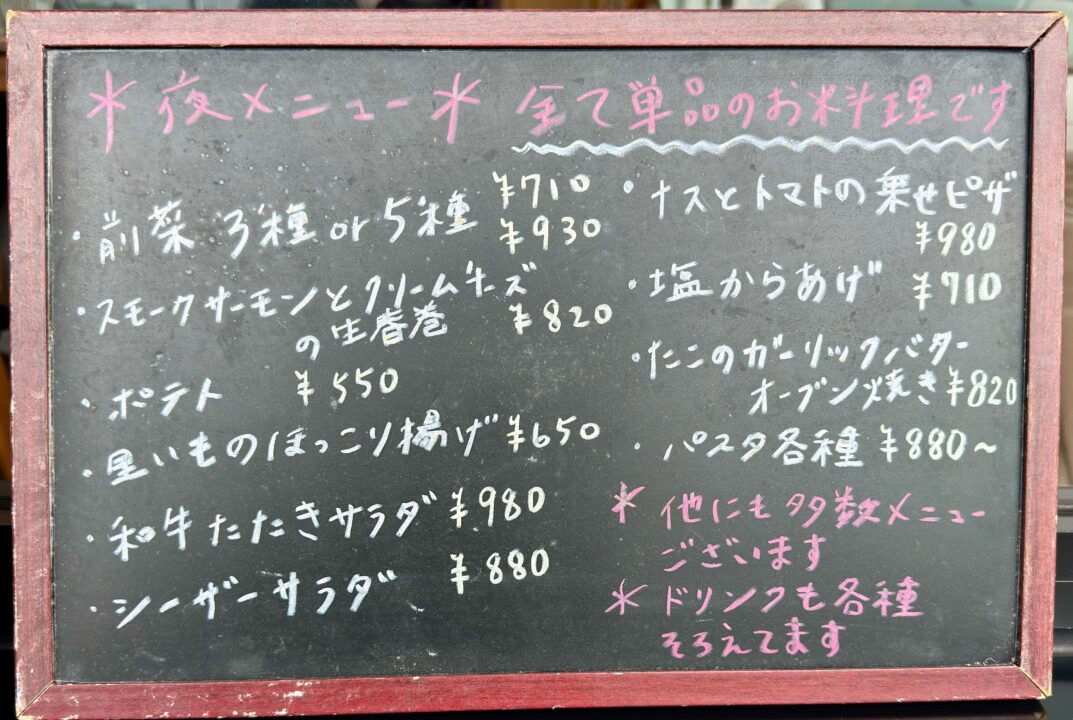 ＊夜メニュー＊ 全て単品のお料理です
・前菜 3種 or 5種 ¥710
¥930
・スモークサーモンとクリームチーズ
の生春巻 ¥820
・ポテト ¥550
・里いものほっこり揚げ ¥650
・和牛たたきサラダ ¥980
・シーザーサラダ ¥880
・ナスとトマトの乗せピザ
¥980
・塩からあげ ¥710
・たこのガーリックバター
オーブン焼き ¥820
・パスタ各種 ¥880～
＊他にも多数メニュー
ございます
＊ドリンクも各種
そろえてます